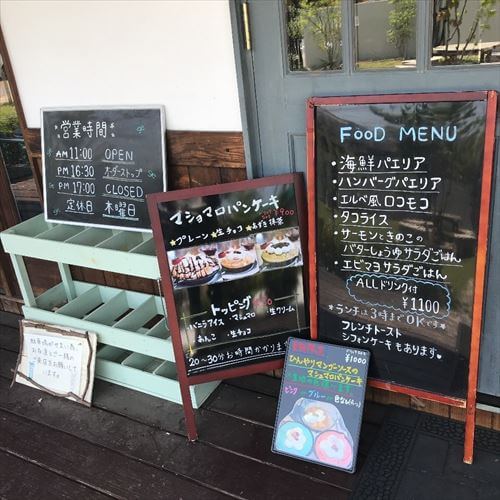 営業時間
AM 11:00 OPEN
PM 16:30 オーダーストップ
PM 17:00 CLOSED
定休日 木曜日
マショマロパンケーキ
¥900
★プレーン ★生チョコ ★あずき抹茶
トッピング
バニラアイス ・マシュマロ ・生クリーム
あんこ ・生チョコ
20~30分お時間かかります
FOOD MENU
・海鮮パエリア
・ハンバーグパエリア
・エルベ風ロコモコ
・タコライス
・サーモンときのこの
バターしょうゆサラダごはん
・エビマヨサラダごはん
ALLドリンク付
¥1100
*ランチは3時までOKです*
フレンチトースト
シフォンケーキもあります
¥1000
ひんやりマンゴーソースの
マショマロパンケーキ
ピンク ブルー